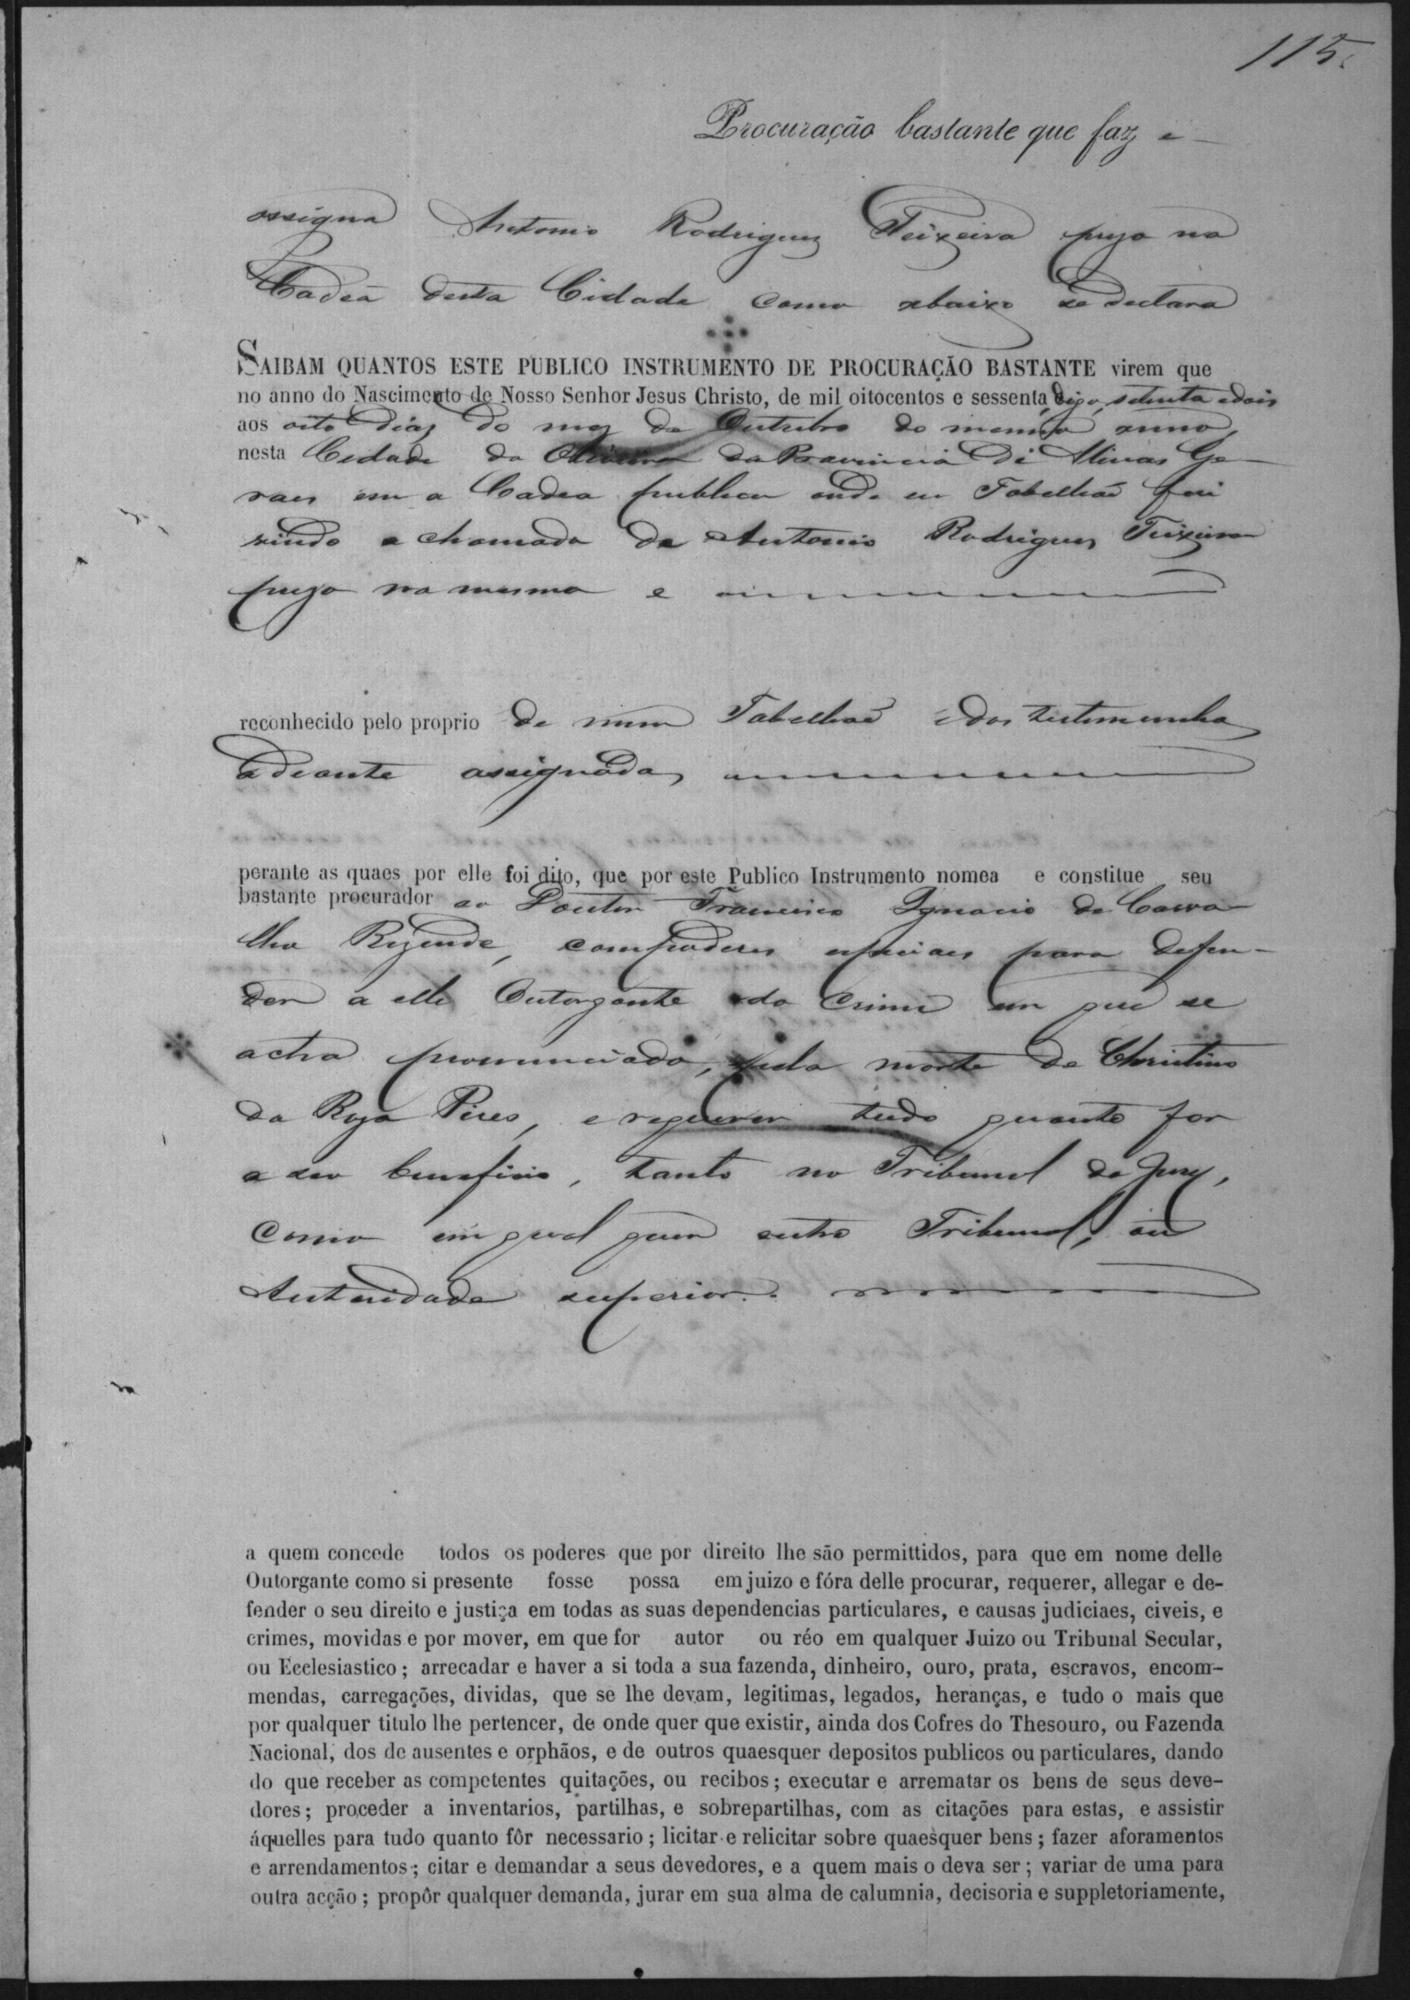 115.
Procuração bastante que faz e
assigna Antonio Rodrigues Teixeira prezo na
Cadea desta Cidade como abaixo se declara
SAIBAM QUANTOS ESTE PUBLICO INSTRUMENTO DE PROCURAÇÃO BASTANTE virem que
no anno do Nascimento de Nosso Senhor Jesus Christo, de mil oitocentos e sessenta, digo, setenta e dois
aos oito dias do mez de Outubro do mesmo anno,
nesta Cidade da Oliveira da Provincia de Minas Ge-
raes em a Cadea publica onde eu Tabelhaõ fui
vindo a chamado de Antonio Rodrigues Teixeira
prezo na mesma e
reconhecido pelo proprio de mim Tabelhaõ e das testimunha
adeante assignadas
perante as quaes por elle foi dito, que por este Publico Instrumento nomea e constitue seu
bastante procurador ao Doutor Francisco Ignacio de Carva-
lho Rezende, com poderes especiaes para defen-
der a elle Outorgante do crime em que se
acha pronunciado, pela morte de Christino
da Roza Pires, e requerer tudo quanto for
a seu beneficio, tanto no Tribunal do Jury,
como em qual quer outro Tribunal, ou
Autoridade superior.
a quem concede todos os poderes que por direito lhe são permittidos, para que em nome delle
Outorgante como si presente fosse possa em juizo e fóra delle procurar, requerer, allegar e de-
fender o seu direito e justiça em todas as suas dependencias particulares, e causas judiciaes, civeis, e
crimes, movidas e por mover, em que for autor ou réo em qualquer Juizo ou Tribunal Secular,
ou Ecclesiastico; arrecadar e haver a si toda a sua fazenda, dinheiro, ouro, prata, escravos, encom-
mendas, carregações, dividas, que se lhe devam, legitimas, legados, heranças, e tudo o mais que
por qualquer titulo lhe pertencer, de onde quer que existir, ainda dos Cofres do Thesouro, ou Fazenda
Nacional, dos de ausentes e orphãos, e de outros quaesquer depositos publicos ou particulares, dando
do que receber as competentes quitações, ou recibos; executar e arrematar os bens de seus deve-
dores; proceder a inventarios, partilhas, e sobrepartilhas, com as citações para estas, e assistir
áquelles para tudo quanto fôr necessario; licitar e relicitar sobre quaesquer bens; fazer aforamentos
e arrendamentos; citar e demandar a seus devedores, e a quem mais o deva ser; variar de uma para
outra acção; propôr qualquer demanda, jurar em sua alma de calumnia, decisoria e suppletoriamente,